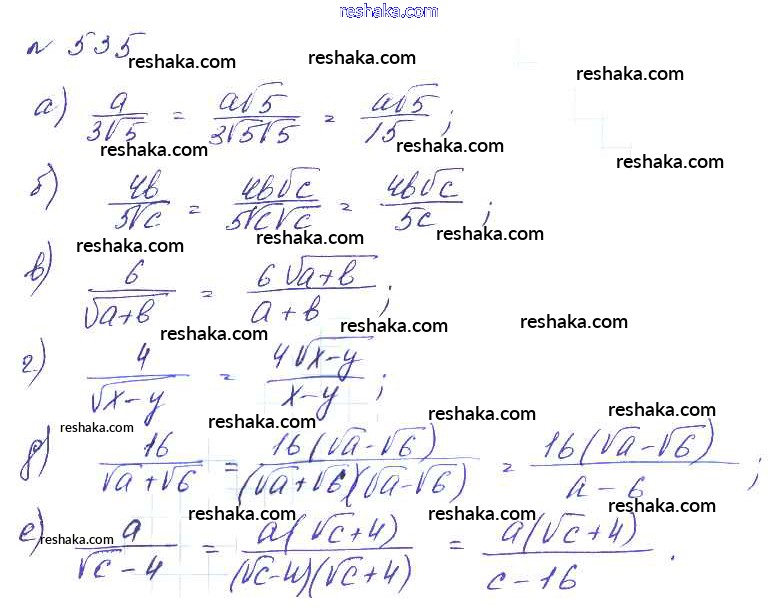 reshaka.com
№ 535
reshaka.com reshaka.com reshaka.com
а) a/(3√5) = a√5/(3√5√5) = a√5/15;
reshaka.com reshaka.com reshaka.com
б) 4b/(5√c) = 4b√c/(5√c√c) = 4b√c/(5c);
reshaka.com reshaka.com reshaka.com
в) 6/√(a+b) = 6√(a+b)/(a+b);
reshaka.com reshaka.com reshaka.com
г) 4/√(x-y) = 4√(x-y)/(x-y);
reshaka.com reshaka.com reshaka.com reshaka.com
д) 16/(√a+√6) = 16(√a-√6)/((√a+√6)(√a-√6)) = 16(√a-√6)/(a-6);
reshaka.com reshaka.com reshaka.com reshaka.com
е) a/(√c-4) = a(√c+4)/((√c-4)(√c+4)) = a(√c+4)/(c-16).